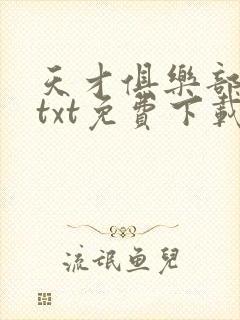 天才俱樂部
txt免費下載
流氓魚兒